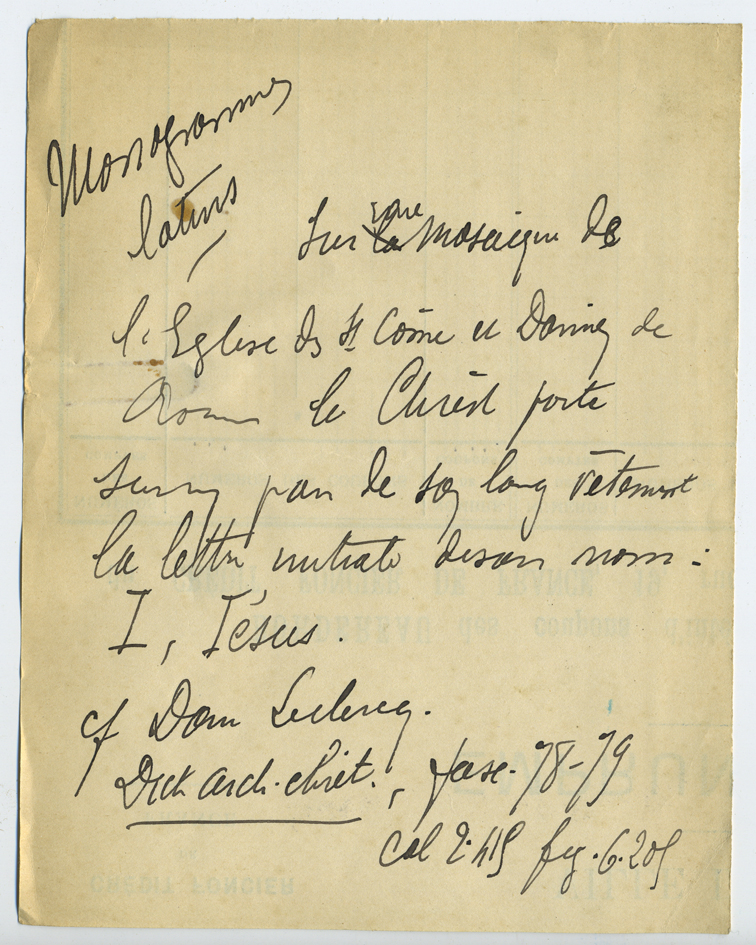 Monogrammes
latins
Sur une mosaïque de
l'Eglise des St Côme et Damien de
Rome le Christ porte
sur un pan de son long vêtement
la lettre initiale de son nom :
I, Iésus.
cf Dom Leclercq.
Dict. arch. chrét., fasc. 78-79
col 2.415 fig. 6.205